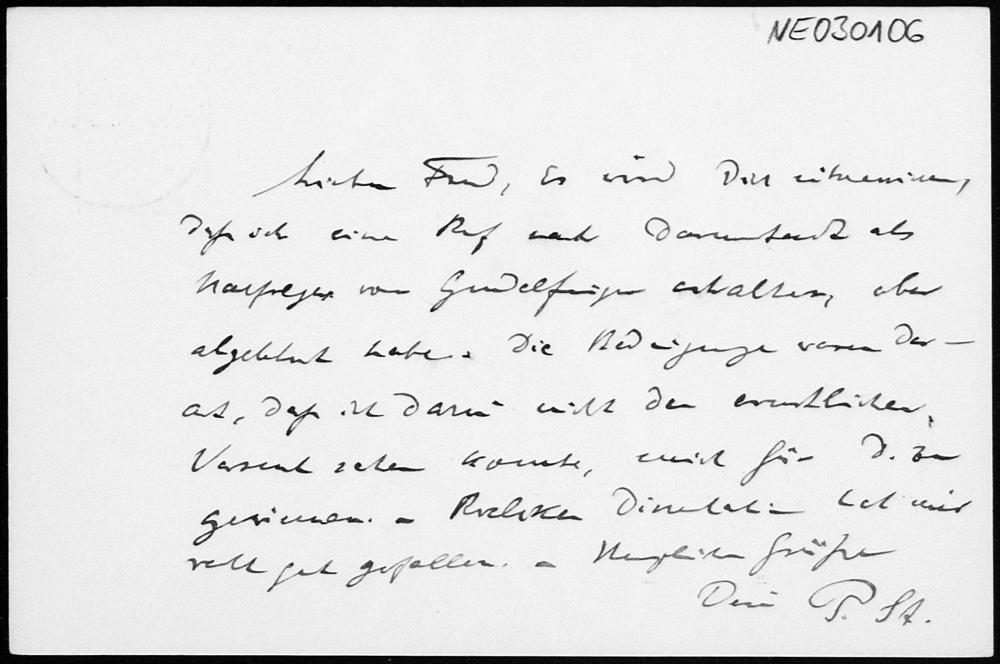 NE030106
Lieber Freund, Es wird Dich interessieren,
daß ich einen Ruf nach Darmstadt als
Nachfolger von Gundelfinger erhalten, aber
abgelehnt habe. Die Bedingungen waren der-
art, daß ich darin nicht den ernstlichen
Versuch sehen konnte, mich für D. zu
gewinnen. – Dissertation hat mir
recht gut gefallen. – Herzliche Grüße
Dein P. St.